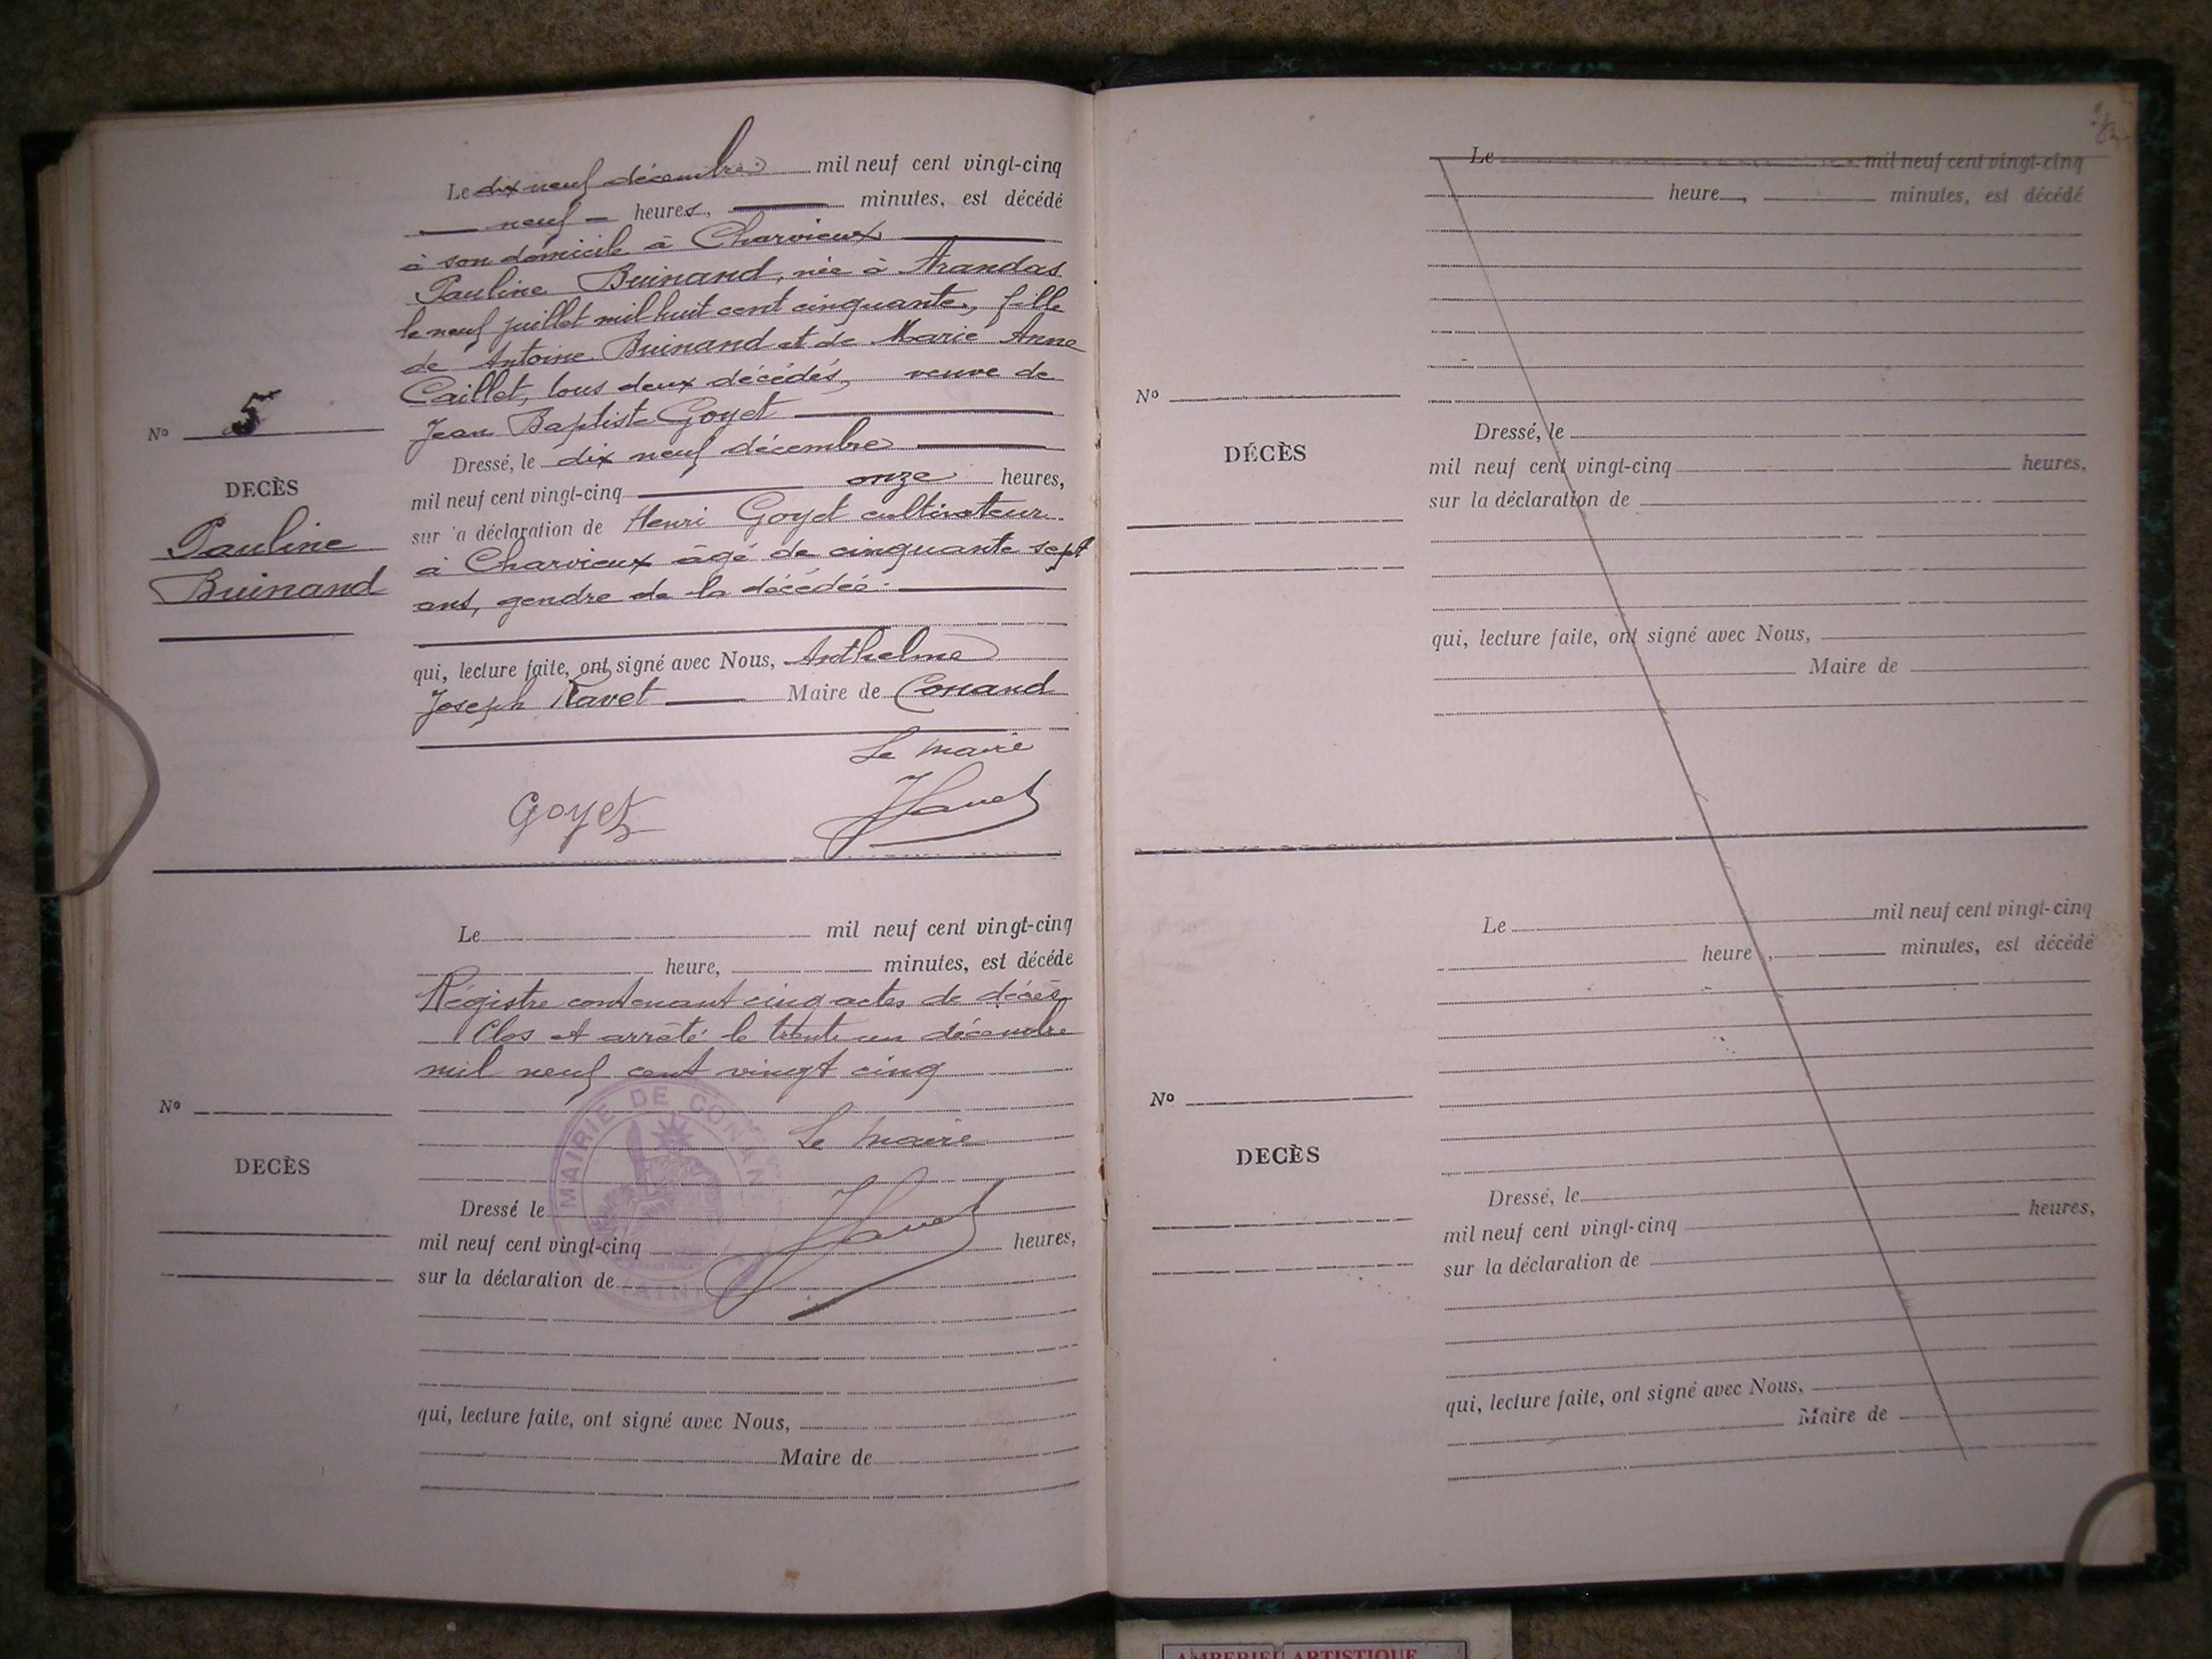 Le dix neuf décembre mil neuf cent vingt-cinq
neuf heures, minutes, est décédé
à son domicile à Charvieux
Pauline Buinand, née à Arandas
le neuf juillet mil huit cent cinquante, fille
de Antoine Buinand et de Marie Anne
Caillet, tous deux décédés, veuve de
Jean Baptiste Goyet
Dressé, le dix neuf décembre
mil neuf cent vingt-cinq onze heures,
sur 'a déclaration de Henri Goyet cultivateur
à Charvieux âgé de cinquante sept
ans, gendre de la décédée.
qui, lecture faite, ont signé avec Nous, Anthelme
Joseph Ravet Maire de Conand
Le maire
Goyet
Ravet
No 5
DECÈS
Pauline
Buinand
Le mil neuf cent vingt-cinq
heure, minutes, est décédé
Régistre contenant cinq actes de décès
Clos et arrêté le trente un décembre
mil neuf cent vingt cinq
Le maire
MAIRIE DE CONAN
AIN
Dressé le
mil neuf cent vingt-cinq heures,
sur la déclaration de
qui, lecture faite, ont signé avec Nous,
Maire de
No
DECÈS
Le mil neuf cent vingt-cinq
heure, minutes, est décédé
No
DÉCÈS
Dressé, le
mil neuf cent vingt-cinq heures,
sur la déclaration de
qui, lecture faite, ont signé avec Nous,
Maire de
Le mil neuf cent vingt-cinq
heure, minutes, est décédé
No
DECÈS
Dressé, le
mil neuf cent vingt-cinq heures,
sur la déclaration de
qui, lecture faite, ont signé avec Nous,
Maire de
AMBERIEU ARTISTIQUE